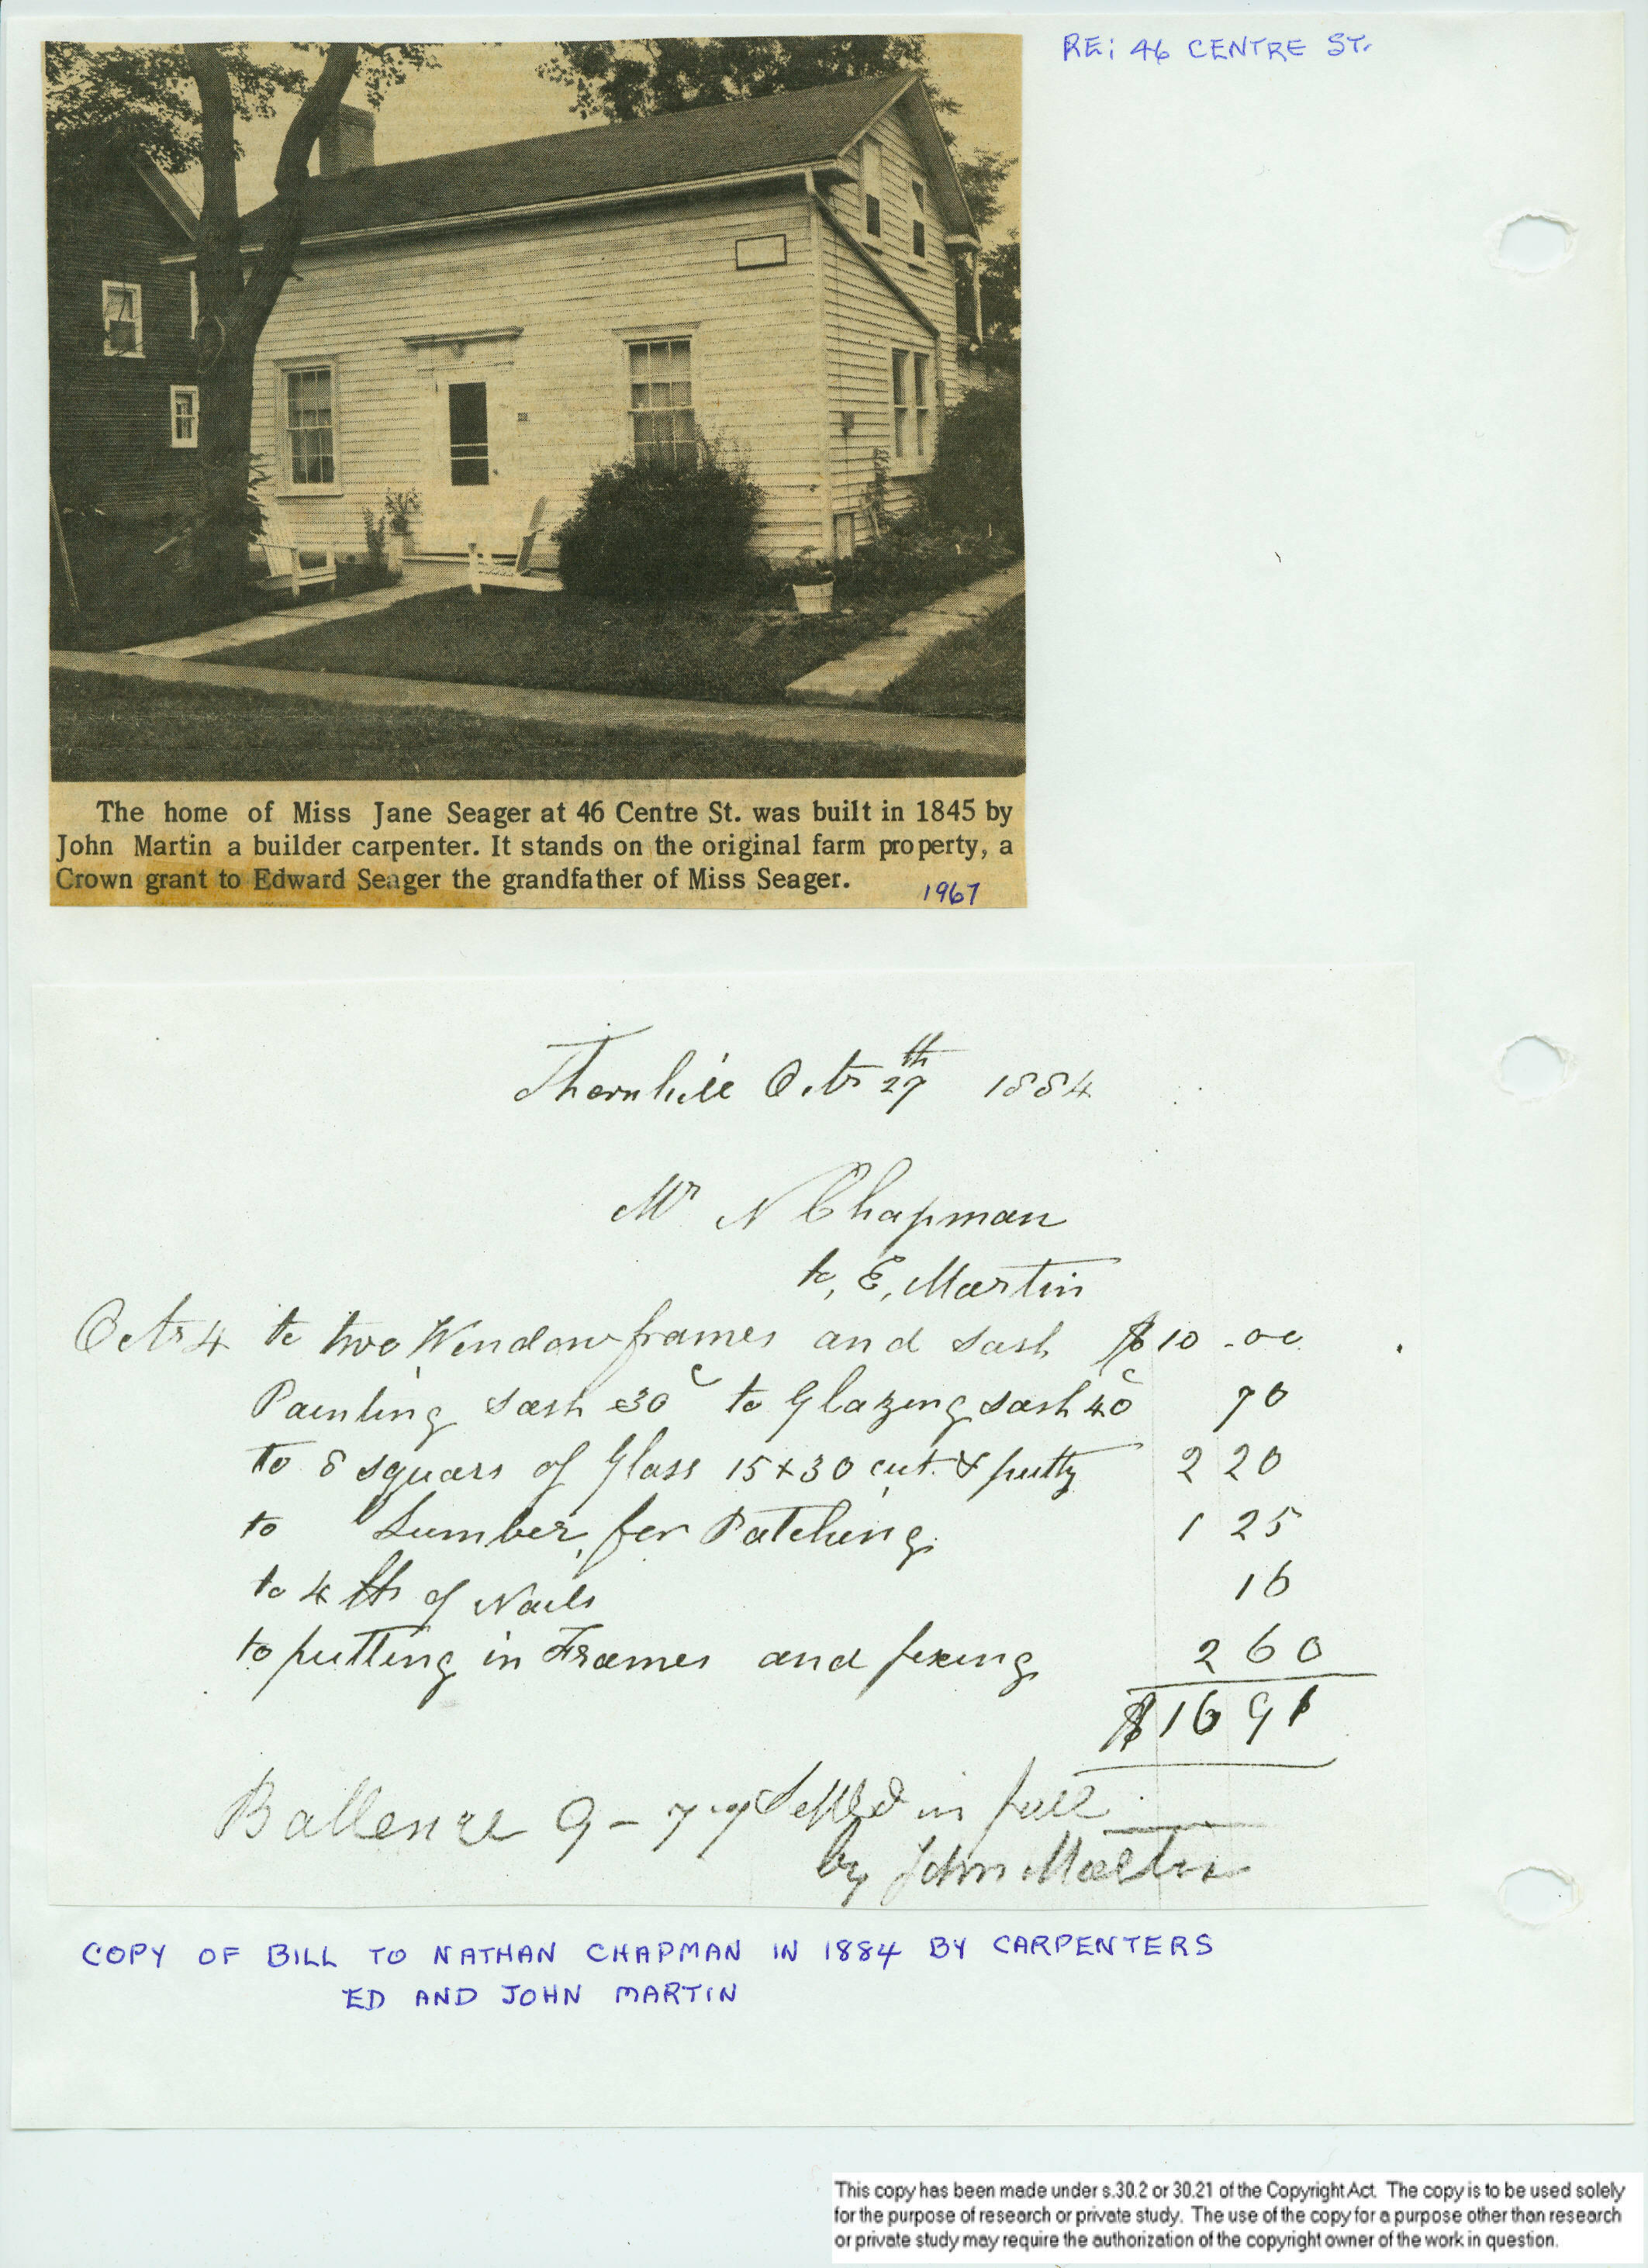 RE: 46 CENTRE ST.
The home of Miss Jane Seager at 46 Centre St. was built in 1845 by
John Martin a builder carpenter. It stands on the original farm property, a
Crown grant to Edward Seager the grandfather of Miss Seager.
1967
Thornhill Octr 29th 1884
Mr N Chapman
to, E, Martin
Octr 4 to two Window frames and sash $10-00
Painting sash 30c to Glazing sash 40c 70
to 8 squars of Glass 15x30 cut & putty 2 20
to Lumber for Patching 1 25
to 4 lbs of Nails 16
to putting in Frames and fixing 2 60
$16 91
Ballence 9-77 Settled in full
by John Martin
COPY OF BILL TO NATHAN CHAPMAN IN 1884 BY CARPENTERS
ED AND JOHN MARTIN
This copy has been made under s.30.2 or 30.21 of the Copyright Act. The copy is to be used solely
for the purpose of research or private study. The use of the copy for a purpose other than research
or private study may require the authorization of the copyright owner of the work in question.